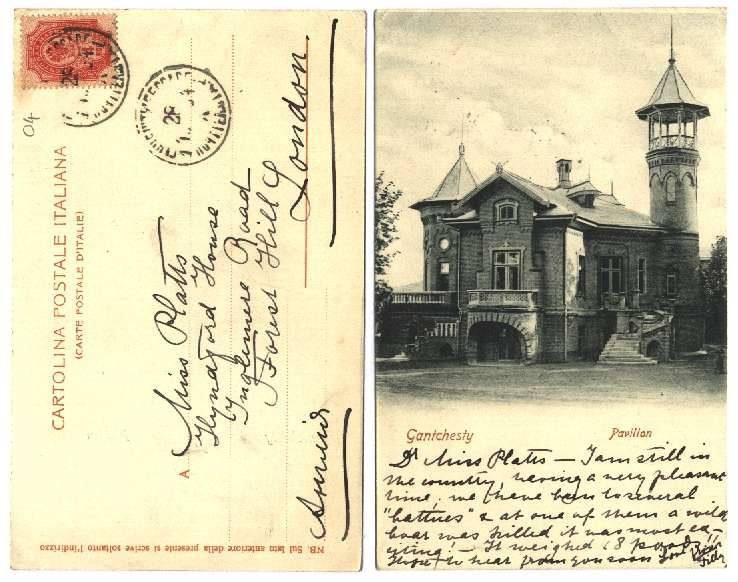 04
CARTOLINA POSTALE ITALIANA
(CARTE POSTALE D'ITALIE)
A
Miss Platts
Hyndford House
Inglemere Road
Forest Hill
London.
NB. Sul lato anteriore della presente si scrive soltanto l'indirizzo
Gantchesty Pavilion
Dr Miss Platts — I am still in
the country, having a very pleasant
time, we have been to several
"battues" & at one of them a wild
boar was killed it was most ex-
citing! — It weighed 18
Hope to hear from you soon Love